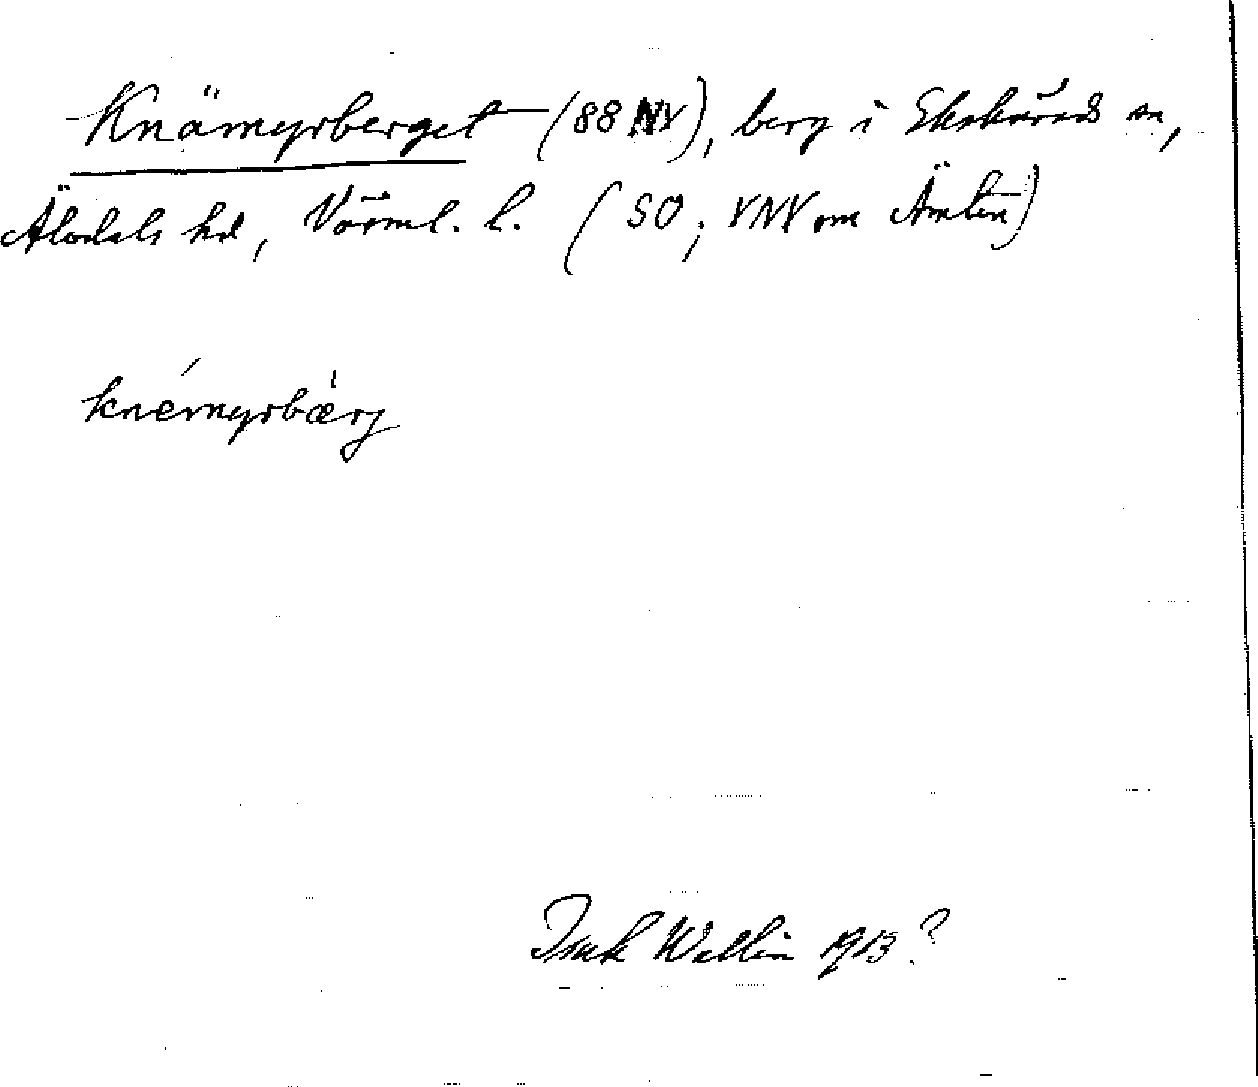 Knämyrberget (88 NV), berg i Ekshärads sn,
Älvdals hd, Värml. l. (SO; VNV om Ämten)
knémyrbæ̀rj
Isak Wallin 1913?